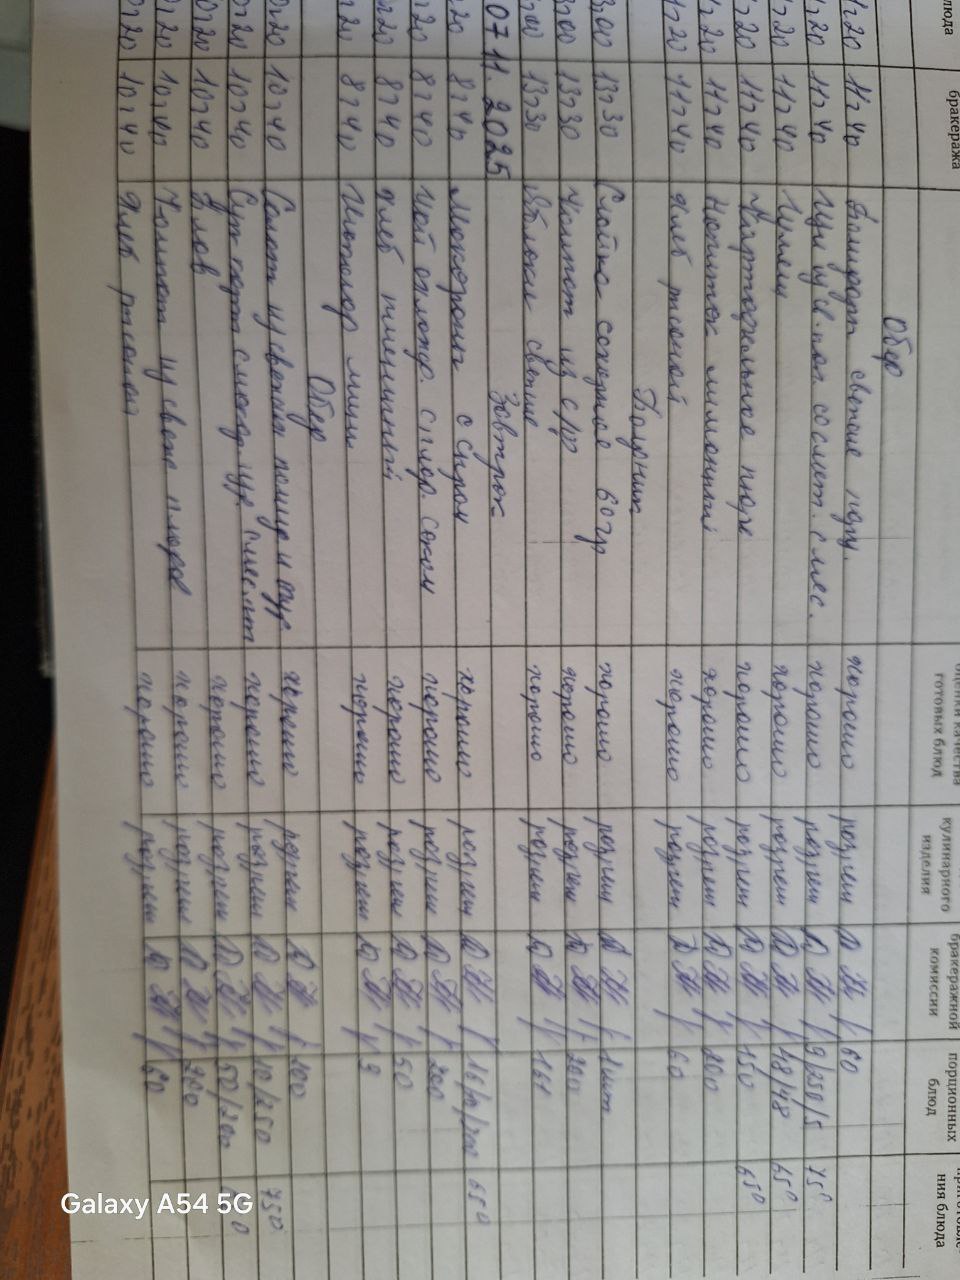 блюда бракеража оценки качества готовых блюд кулинарного изделия бракеражной комиссии порционных блюд ния блюда
Обед
11 20 11 40 Помидоры свежие порц. хорошо разреш 60
11 20 11 40 Щи из св. кап со смет. с мяс. хорошо разреш 9/250/5 75°
11 20 11 40 Гуляш хорошо разреш 48/48 65°
11 20 11 40 Картофельное пюре хорошо разреш 150 65°
11 20 11 40 Напиток лимонный хорошо разреш 200
11 20 11 40 Хлеб ржаной хорошо разреш 60
Полдник
13 00 13 30 Слойка сахарная 60гр хорошо разреш 1 шт
13 00 13 30 Компот из с/ф хорошо разреш 200
13 00 13 30 Яблоки свежие хорошо разреш 161
07.11.2025 Завтрак
8 20 8 40 Макароны с сыром хорошо разреш 650
8 20 8 40 Чай с сахар. соком хорошо разреш 200
8 20 8 40 Хлеб пшеничный хорошо разреш 50
8 20 8 40 хорошо разреш 9
Обед
10 20 10 40 Салат из свежих помид и огур хорошо разреш 100
10 20 10 40 Суп карт с макар изд. с мясом хорошо разреш 10/250 750
10 20 10 40 Плов хорошо разреш 50/200
10 20 10 40 Компот из свежих плодов хорошо разреш 200
10 20 10 40 Хлеб ржаной хорошо разреш 60
Galaxy A54 5G